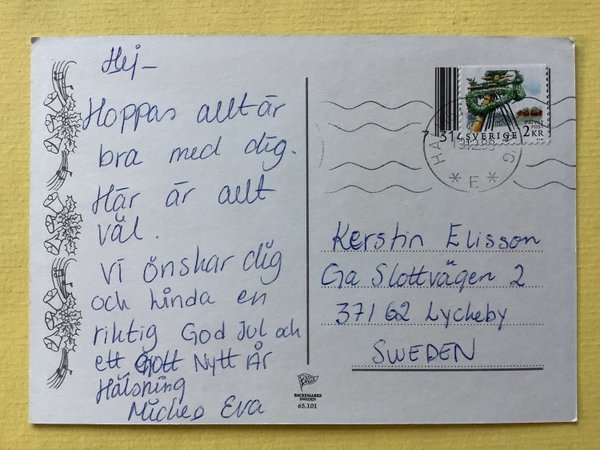 Hej-
Hoppas allt är
bra med dig.
Här är allt
väl.
Vi önskar dig
och hinda en
riktig God Jul och
ett Gott Nytt År
Hälsning
Eva
7 314 SVERIGE 2 KR
Kerstin Elisson
Ga Slottvägen 2
37162 Lyckeby
SWEDEN
BACKEMARKS
SWEDEN
65.101